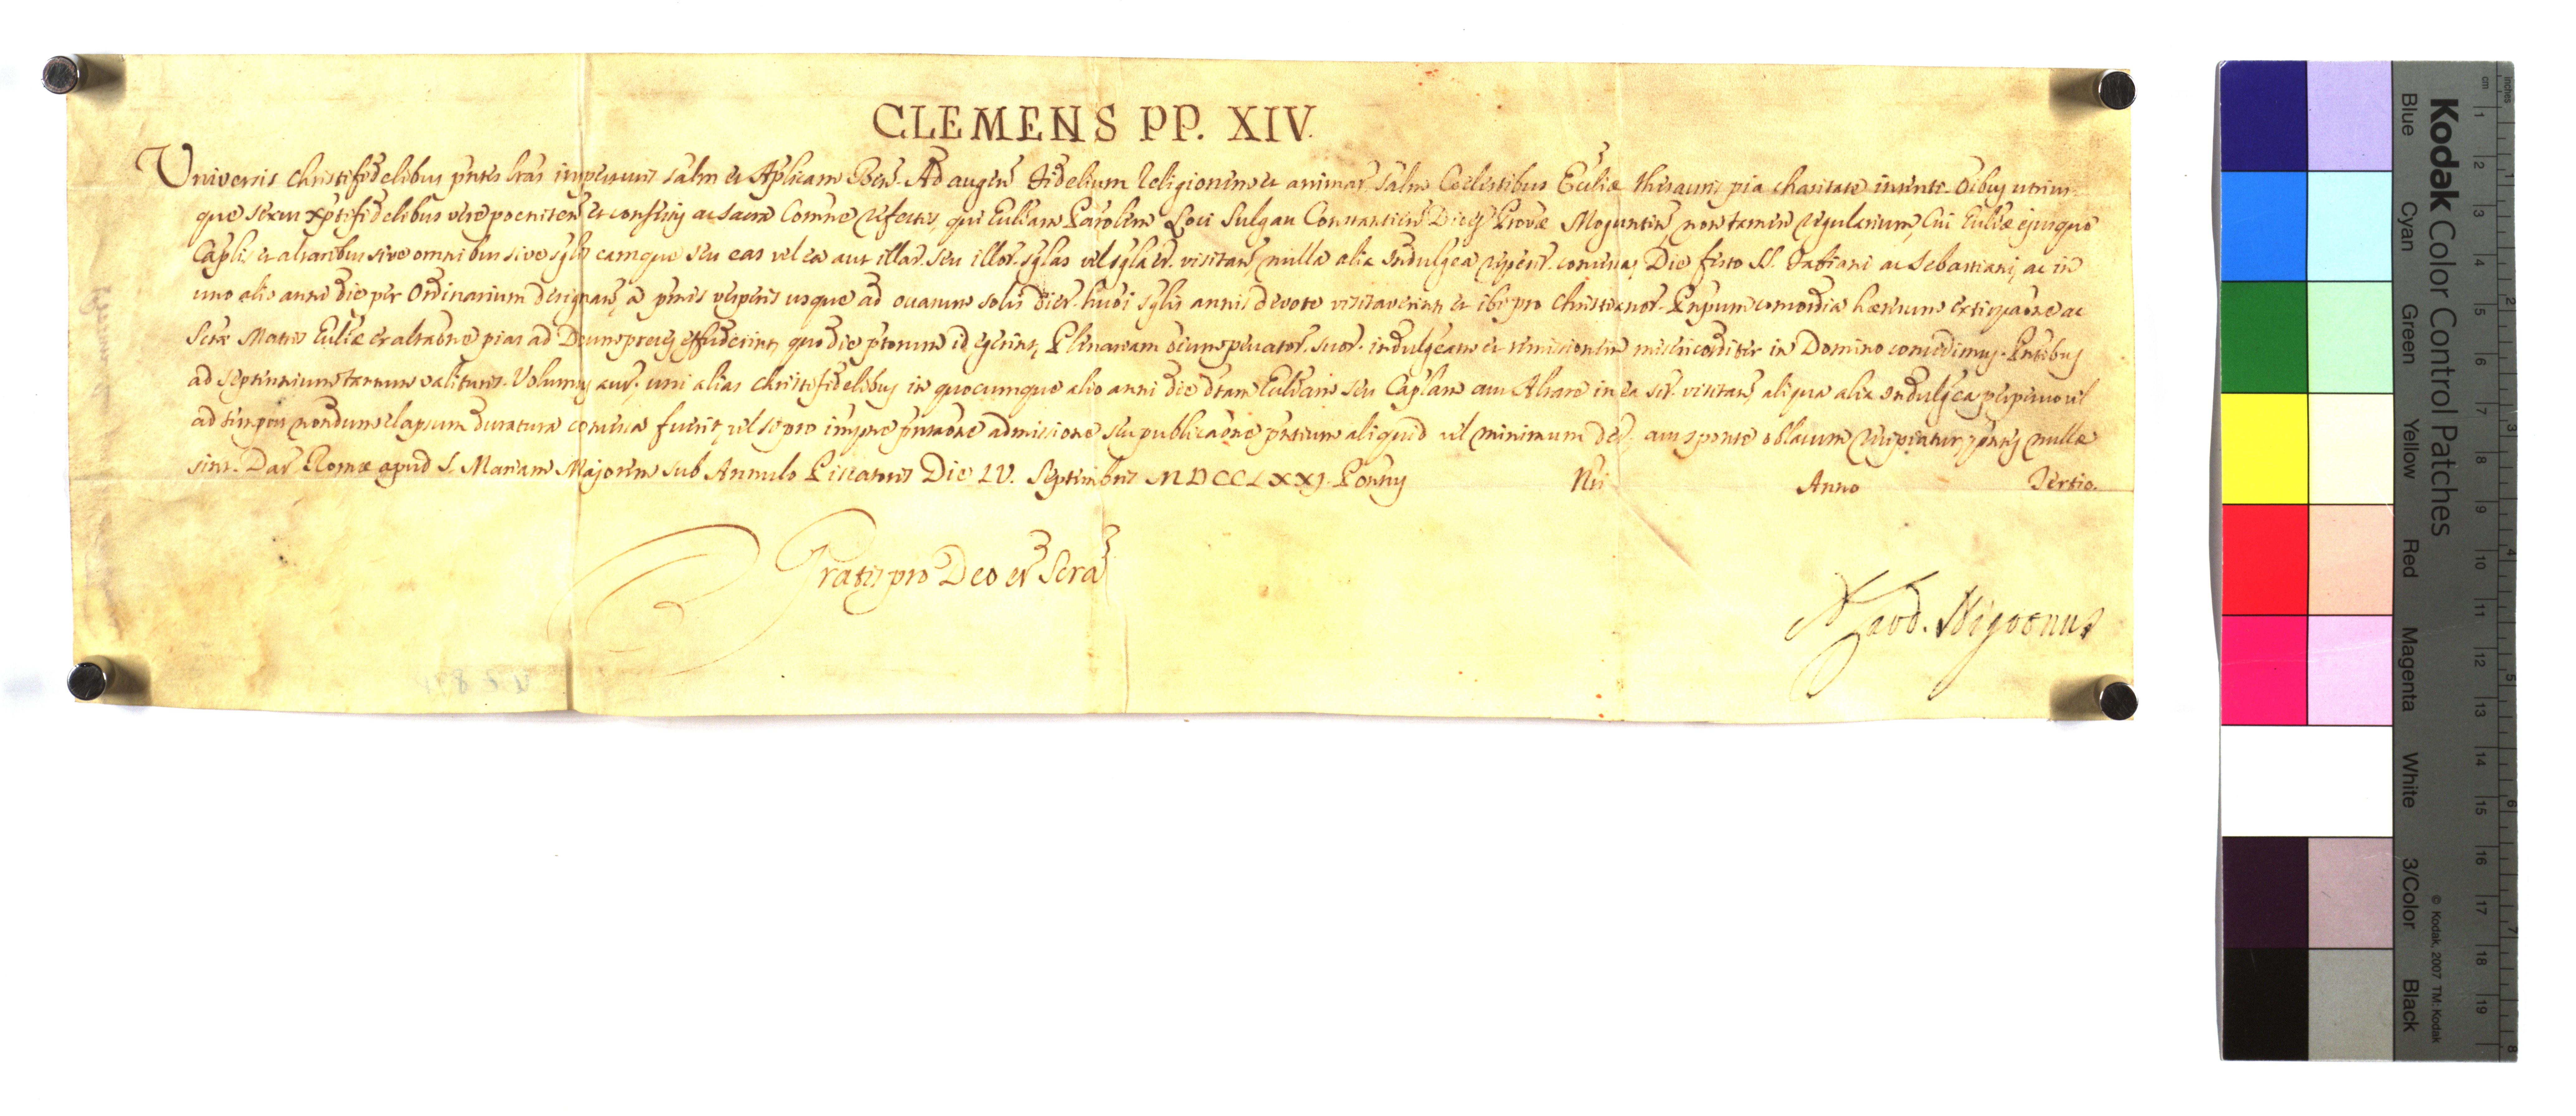 CLEMENS PP. XIV.
Universis christifidelibus pntes lras inspecturis salm et Aplicam Ben. Ad augen fidelium Religionem et animar. salm Coelestibus Ecclie thesauris pia charitate intenti Oibus utrius
que sexus xptifidelibus vere poeniten et confessis ac sacra Comne refectis, qui Eccliam Parolem Loci Sulgau Constantien Dioec Provae Moguntin, non tamen regularium, Cui Ecclae ejusque
Caplis et altaribus sive omnibus sive sglis eamque seu eas vel ea aut illar. seu illor. sglas vel sgla et. visitan nulla alia Indulgea reperit. concessa, Die festo SS. Fabiani ac Sebastiani, ac in
uno alio anni die per Ordinarium designan, a pmis vesperis usque ad occasum solis dier. hujoi sglis annis devote visitaverint et ibi pro christianor. Pnpum concordia haeresum extirpaone ac
Sctae Matris Eccliae exaltaone pias ad Deum preces effuderint, quo die ptorum id egerint, Plenariam oium peccator. suor. indulgeam et remissionem misericorditer in Domino concedimus. Pntibus
ad septennium tantum valituris. Volumus aut. uti si alias christifidelibus in quocumque alio anni die dtam Eccliam seu Caplam aut Altare in ea sit. visitan aliqua alia Indulgea perpetuo vel
ad tempus nondum elapsum duratura concessa fuerit, vel si pro impne pntaone admissione seu publicaone pntium aliquid vel minimum det, aut sponte oblatum recipiatur, pntes nullae
sint. Dat. Romae apud S. Mariam Majorem sub Annulo Piscatoris Die IV. Septembris MDCCLXXI. Pontus Nri Anno Tertio.
Gratis pro Deo et Scra
A. Card. Nigronus
Kodak Color Control Patches
Blue Cyan Green Yellow Red Magenta White 3/Color Black
© Kodak, 2007 TM: Kodak
inches 1 2 3 4 5 6 7 8
cm 1 2 3 4 5 6 7 8 9 10 11 12 13 14 15 16 17 18 19